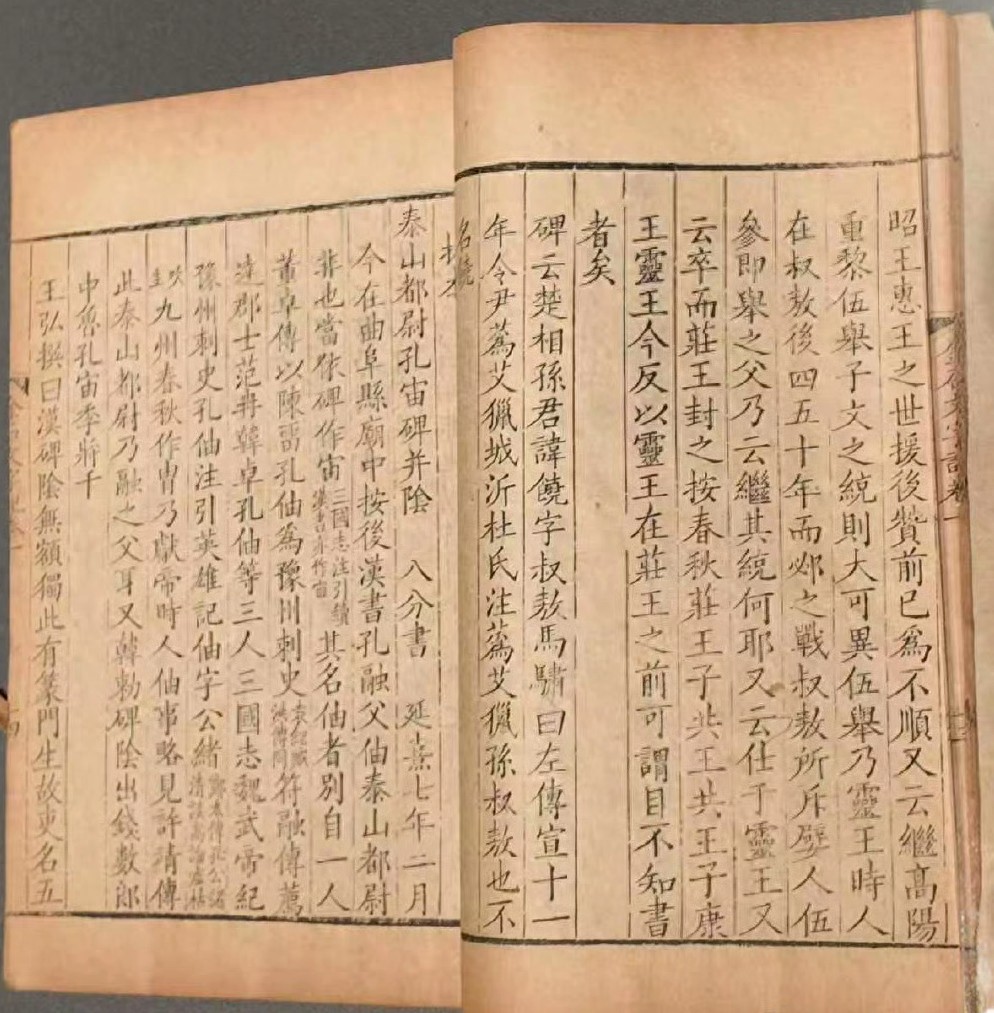 昭王惠王之世援後贊前已為不順又云繼髙陽
重黎伍舉子文之統則大可異伍舉乃靈王時人
在叔敖後四五十年而邲之戰叔敖所斥嬖人伍
參即舉之父乃云繼其統何耶又云仕于靈王又
云卒而莊王封之按春秋莊王子共王共王子康
王靈王今反以靈王在莊王之前可謂目不知書
者矣
碑云楚相孫君諱饒字叔敖馬驌曰左傳宣十一
年令尹蒍艾獵城沂杜氏注蒍艾獵孫叔敖也不
名饒
泰山都尉孔宙碑并陰 八分書 延熹七年二月
今在曲阜縣廟中按後漢書孔融父伷泰山都尉
非也當依碑作宙三國志注引續漢書亦作宙其名伷者別自一人
董卓傳以陳畱孔伷為豫州刺史袁紹臧洪傳同符融傳薦
達郡士范冉韓卓孔伷等三人三國志魏武帝紀
豫州刺史孔伷注引英雄記伷字公緒鄭泰傳孔公緒清談高論噓枯
吹生九州春秋作冑乃獻帝時人伷事略見許靖傳
此泰山都尉乃融之父耳又韓勅碑陰出錢數郎
中魯孔宙季將千
王弘撰曰漢碑陰無額獨此有篆門生故吏名五